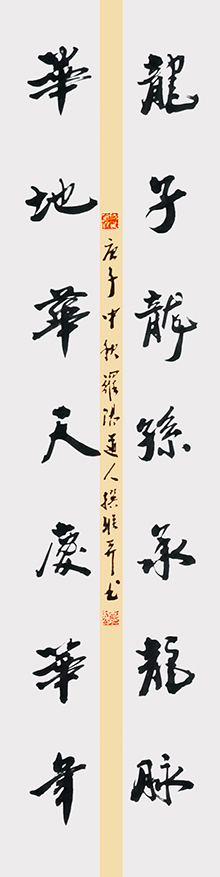 龍子龍孫承龍脉
華地華天慶華年
庚子中秋羅浮道人撰联并书